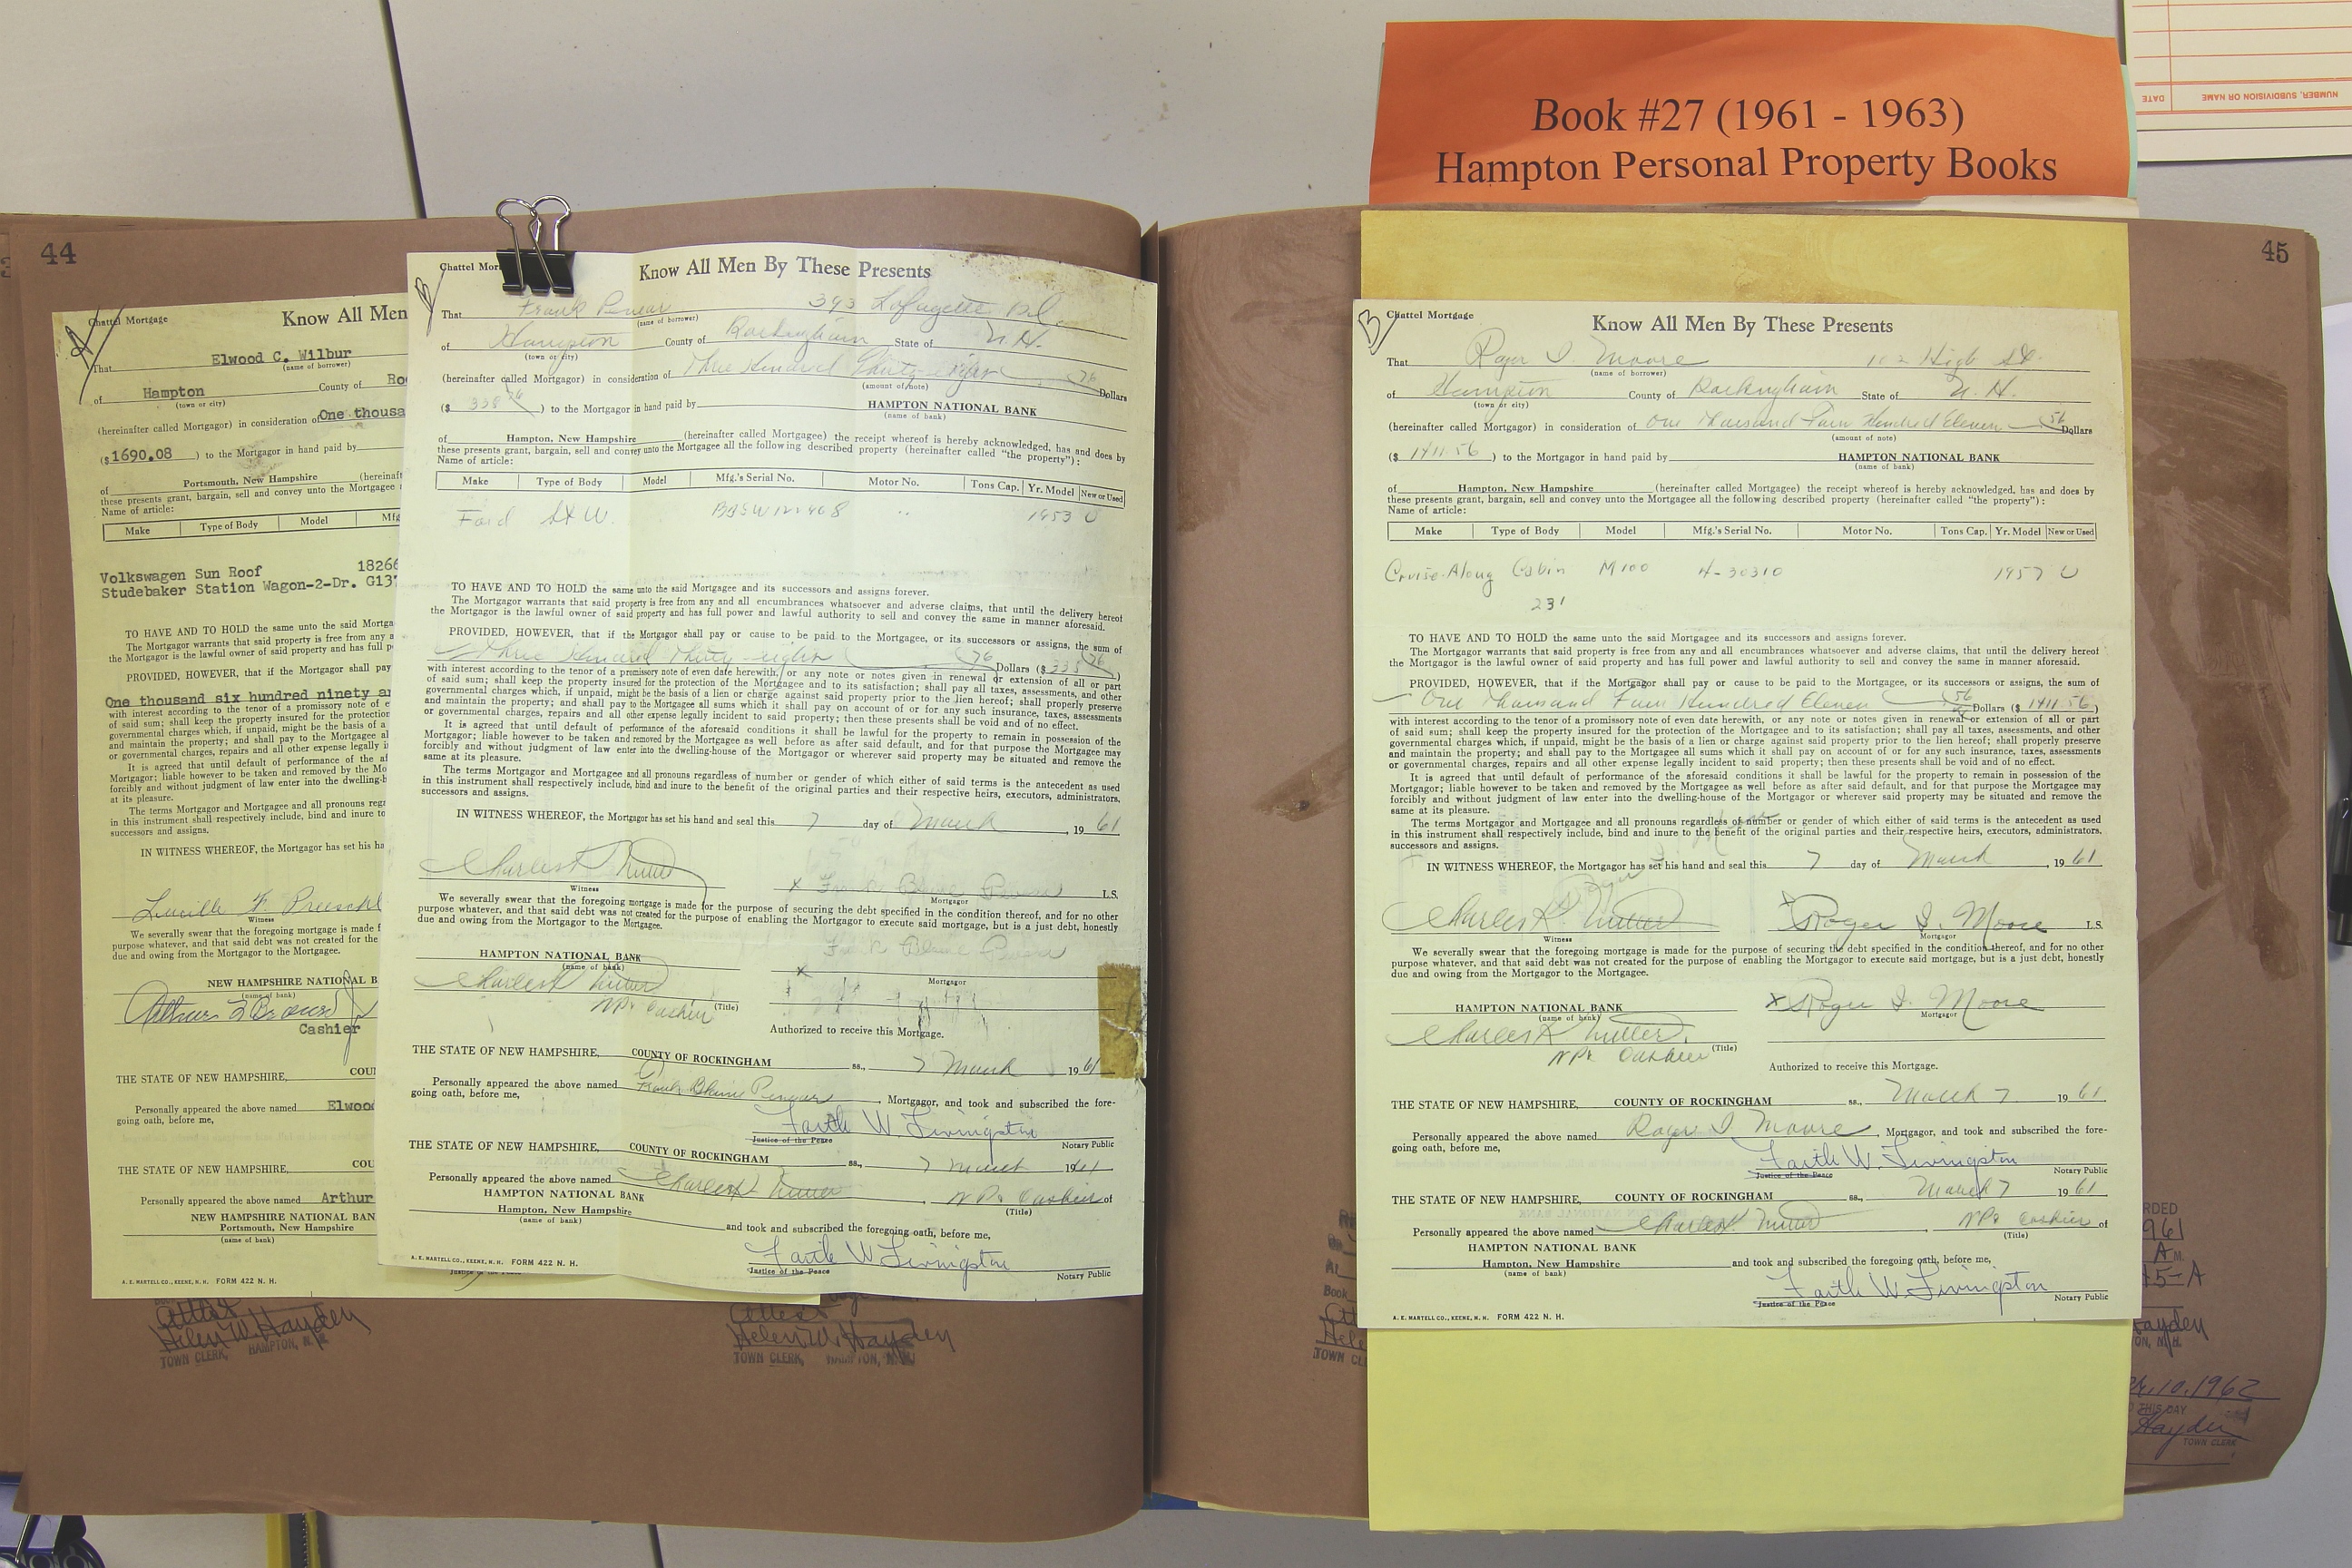 NUMBER, SUBDIVISION OR NAME
DATE
Book #27 (1961 - 1963)
Hampton Personal Property Books
44
Chattel Mortgage
Know All Men
That Elwood C. Wilbur
(name of borrower)
of Hampton County of Ro
(town or city)
(hereinafter called Mortgagor) in consideration of One thousa
($1690.08 ) to the Mortgagor in hand paid by
of Portsmouth, New Hampshire (hereinaft
these presents grant, bargain, sell and convey unto the Mortgagee
Name of article:
Make Type of Body Model Mfg
Volkswagen Sun Roof 18266
Studebaker Station Wagon-2-Dr. G137
TO HAVE AND TO HOLD the same unto the said Mortga
The Mortgagor warrants that said property is free from any a
the Mortgagor is the lawful owner of said property and has full p
PROVIDED, HOWEVER, that if the Mortgagor shall pay
One thousand six hundred ninety an
with interest according to the tenor of a promissory note of e
of said sum; shall keep the property insured for the protection
governmental charges which, if unpaid, might be the basis of a
and maintain the property; and shall pay to the Mortgagee al
or governmental charges, repairs and all other expense legally i
It is agreed that until default of performance of the af
Mortgagor; liable however to be taken and removed by the Mo
forcibly and without judgment of law enter into the dwelling-h
at its pleasure.
The terms Mortgagor and Mortgagee and all pronouns rega
in this instrument shall respectively include, bind and inure to
successors and assigns.
IN WITNESS WHEREOF, the Mortgagor has set his ha
Lucille F.
Witness
We severally swear that the foregoing mortgage is made f
purpose whatever, and that said debt was not created for the
due and owing from the Mortgagor to the Mortgagee.
NEW HAMPSHIRE NATIONAL B
(name of bank)
Cashier
THE STATE OF NEW HAMPSHIRE, COU
Personally appeared the above named Elwood
going oath, before me,
THE STATE OF NEW HAMPSHIRE, COU
Personally appeared the above named Arthur
NEW HAMPSHIRE NATIONAL BAN
Portsmouth, New Hampshire
(name of bank)
A. E. MARTELL CO., KEENE, N. H. FORM 422 N. H.
Attest
Helen W. Hayden
TOWN CLERK, HAMPTON, N. H.
B
Chattel Mor
Know All Men By These Presents
That Frank 393 Lafayette Rd.
(name of borrower)
of Hampton County of Rockingham State of N. H.
(town or city)
(hereinafter called Mortgagor) in consideration of Three Hundred Thirty-eight 76 Dollars
(amount of note)
($ 338 76 ) to the Mortgagor in hand paid by HAMPTON NATIONAL BANK
(name of bank)
of Hampton, New Hampshire (hereinafter called Mortgagee) the receipt whereof is hereby acknowledged, has and does by
these presents grant, bargain, sell and convey unto the Mortgagee all the following described property (hereinafter called "the property"):
Name of article:
Make Type of Body Model Mfg.'s Serial No. Motor No. Tons Cap. Yr. Model New or Used
Ford St W. 1953 U
TO HAVE AND TO HOLD the same unto the said Mortgagee and its successors and assigns forever.
The Mortgagor warrants that said property is free from any and all encumbrances whatsoever and adverse claims, that until the delivery hereof
the Mortgagor is the lawful owner of said property and has full power and lawful authority to sell and convey the same in manner aforesaid.
PROVIDED, HOWEVER, that if the Mortgagor shall pay or cause to be paid to the Mortgagee, or its successors or assigns, the sum of
Three Hundred Thirty-eight 76 Dollars ($ 338 76 )
with interest according to the tenor of a promissory note of even date herewith, or any note or notes given in renewal or extension of all or part
of said sum; shall keep the property insured for the protection of the Mortgagee and to its satisfaction; shall pay all taxes, assessments, and other
governmental charges which, if unpaid, might be the basis of a lien or charge against said property prior to the lien hereof; shall properly preserve
and maintain the property; and shall pay to the Mortgagee all sums which it shall pay on account of or for any such insurance, taxes, assessments
or governmental charges, repairs and all other expense legally incident to said property; then these presents shall be void and of no effect.
It is agreed that until default of performance of the aforesaid conditions it shall be lawful for the property to remain in possession of the
Mortgagor; liable however to be taken and removed by the Mortgagee as well before as after said default, and for that purpose the Mortgagee may
forcibly and without judgment of law enter into the dwelling-house of the Mortgagor or wherever said property may be situated and remove the
same at its pleasure.
The terms Mortgagor and Mortgagee and all pronouns regardless of number or gender of which either of said terms is the antecedent as used
in this instrument shall respectively include, bind and inure to the benefit of the original parties and their respective heirs, executors, administrators,
successors and assigns.
IN WITNESS WHEREOF, the Mortgagor has set his hand and seal this 7 day of March , 19 61
Charles
Witness
x Frank L.S.
Mortgagor
We severally swear that the foregoing mortgage is made for the purpose of securing the debt specified in the condition thereof, and for no other
purpose whatever, and that said debt was not created for the purpose of enabling the Mortgagor to execute said mortgage, but is a just debt, honestly
due and owing from the Mortgagor to the Mortgagee.
HAMPTON NATIONAL BANK
(name of bank)
x Mortgagor
VP & Cashier (Title)
Authorized to receive this Mortgage.
THE STATE OF NEW HAMPSHIRE, COUNTY OF ROCKINGHAM ss., 7 March 19 61
Personally appeared the above named Frank , Mortgagor, and took and subscribed the fore-
going oath, before me,
Faith W. Livingston
Justice of the Peace Notary Public
THE STATE OF NEW HAMPSHIRE, COUNTY OF ROCKINGHAM ss., 7 March 19 61
Personally appeared the above named VP & Cashier of
HAMPTON NATIONAL BANK (Title)
Hampton, New Hampshire
(name of bank)
and took and subscribed the foregoing oath, before me,
Faith W. Livingston
Justice of the Peace Notary Public
A. E. MARTELL CO., KEENE, N. H. FORM 422 N. H.
Attest
Helen W. Hayden
TOWN CLERK, HAMPTON, N. H.
45
B
Chattel Mortgage
Know All Men By These Presents
That Roger I. Moore 102 High St.
(name of borrower)
of Hampton County of Rockingham State of N. H.
(town or city)
(hereinafter called Mortgagor) in consideration of One Thousand Four Hundred Eleven 56 Dollars
(amount of note)
($ 1411 56 ) to the Mortgagor in hand paid by HAMPTON NATIONAL BANK
(name of bank)
of Hampton, New Hampshire (hereinafter called Mortgagee) the receipt whereof is hereby acknowledged, has and does by
these presents grant, bargain, sell and convey unto the Mortgagee all the following described property (hereinafter called "the property"):
Name of article:
Make Type of Body Model Mfg.'s Serial No. Motor No. Tons Cap. Yr. Model New or Used
Cruise-Along Cabin M100 4-30310 1957 U
23'
TO HAVE AND TO HOLD the same unto the said Mortgagee and its successors and assigns forever.
The Mortgagor warrants that said property is free from any and all encumbrances whatsoever and adverse claims, that until the delivery hereof
the Mortgagor is the lawful owner of said property and has full power and lawful authority to sell and convey the same in manner aforesaid.
PROVIDED, HOWEVER, that if the Mortgagor shall pay or cause to be paid to the Mortgagee, or its successors or assigns, the sum of
One Thousand Four Hundred Eleven 56 Dollars ($ 1411 56 )
with interest according to the tenor of a promissory note of even date herewith, or any note or notes given in renewal or extension of all or part
of said sum; shall keep the property insured for the protection of the Mortgagee and to its satisfaction; shall pay all taxes, assessments, and other
governmental charges which, if unpaid, might be the basis of a lien or charge against said property prior to the lien hereof; shall properly preserve
and maintain the property; and shall pay to the Mortgagee all sums which it shall pay on account of or for any such insurance, taxes, assessments
or governmental charges, repairs and all other expense legally incident to said property; then these presents shall be void and of no effect.
It is agreed that until default of performance of the aforesaid conditions it shall be lawful for the property to remain in possession of the
Mortgagor; liable however to be taken and removed by the Mortgagee as well before as after said default, and for that purpose the Mortgagee may
forcibly and without judgment of law enter into the dwelling-house of the Mortgagor or wherever said property may be situated and remove the
same at its pleasure.
The terms Mortgagor and Mortgagee and all pronouns regardless of number or gender of which either of said terms is the antecedent as used
in this instrument shall respectively include, bind and inure to the benefit of the original parties and their respective heirs, executors, administrators,
successors and assigns.
IN WITNESS WHEREOF, the Mortgagor has set his hand and seal this 7 day of March , 19 61
Witness
x Roger I. Moore L.S.
Mortgagor
We severally swear that the foregoing mortgage is made for the purpose of securing the debt specified in the condition thereof, and for no other
purpose whatever, and that said debt was not created for the purpose of enabling the Mortgagor to execute said mortgage, but is a just debt, honestly
due and owing from the Mortgagor to the Mortgagee.
HAMPTON NATIONAL BANK
(name of bank)
x Roger I. Moore
Mortgagor
VP & Cashier (Title)
Authorized to receive this Mortgage.
THE STATE OF NEW HAMPSHIRE, COUNTY OF ROCKINGHAM ss., March 7 19 61
Personally appeared the above named Roger I Moore , Mortgagor, and took and subscribed the fore-
going oath, before me,
Faith W. Livingston
Justice of the Peace Notary Public
THE STATE OF NEW HAMPSHIRE, COUNTY OF ROCKINGHAM ss., March 7 19 61
Personally appeared the above named VP & Cashier of
HAMPTON NATIONAL BANK (Title)
Hampton, New Hampshire
(name of bank)
and took and subscribed the foregoing oath, before me,
Faith W. Livingston
Justice of the Peace Notary Public
A. E. MARTELL CO., KEENE, N. H. FORM 422 N. H.
RDED
961
A M.
45-A
ayden
ON, N. H.
10, 1962
THIS DAY
Hayden
TOWN CLERK